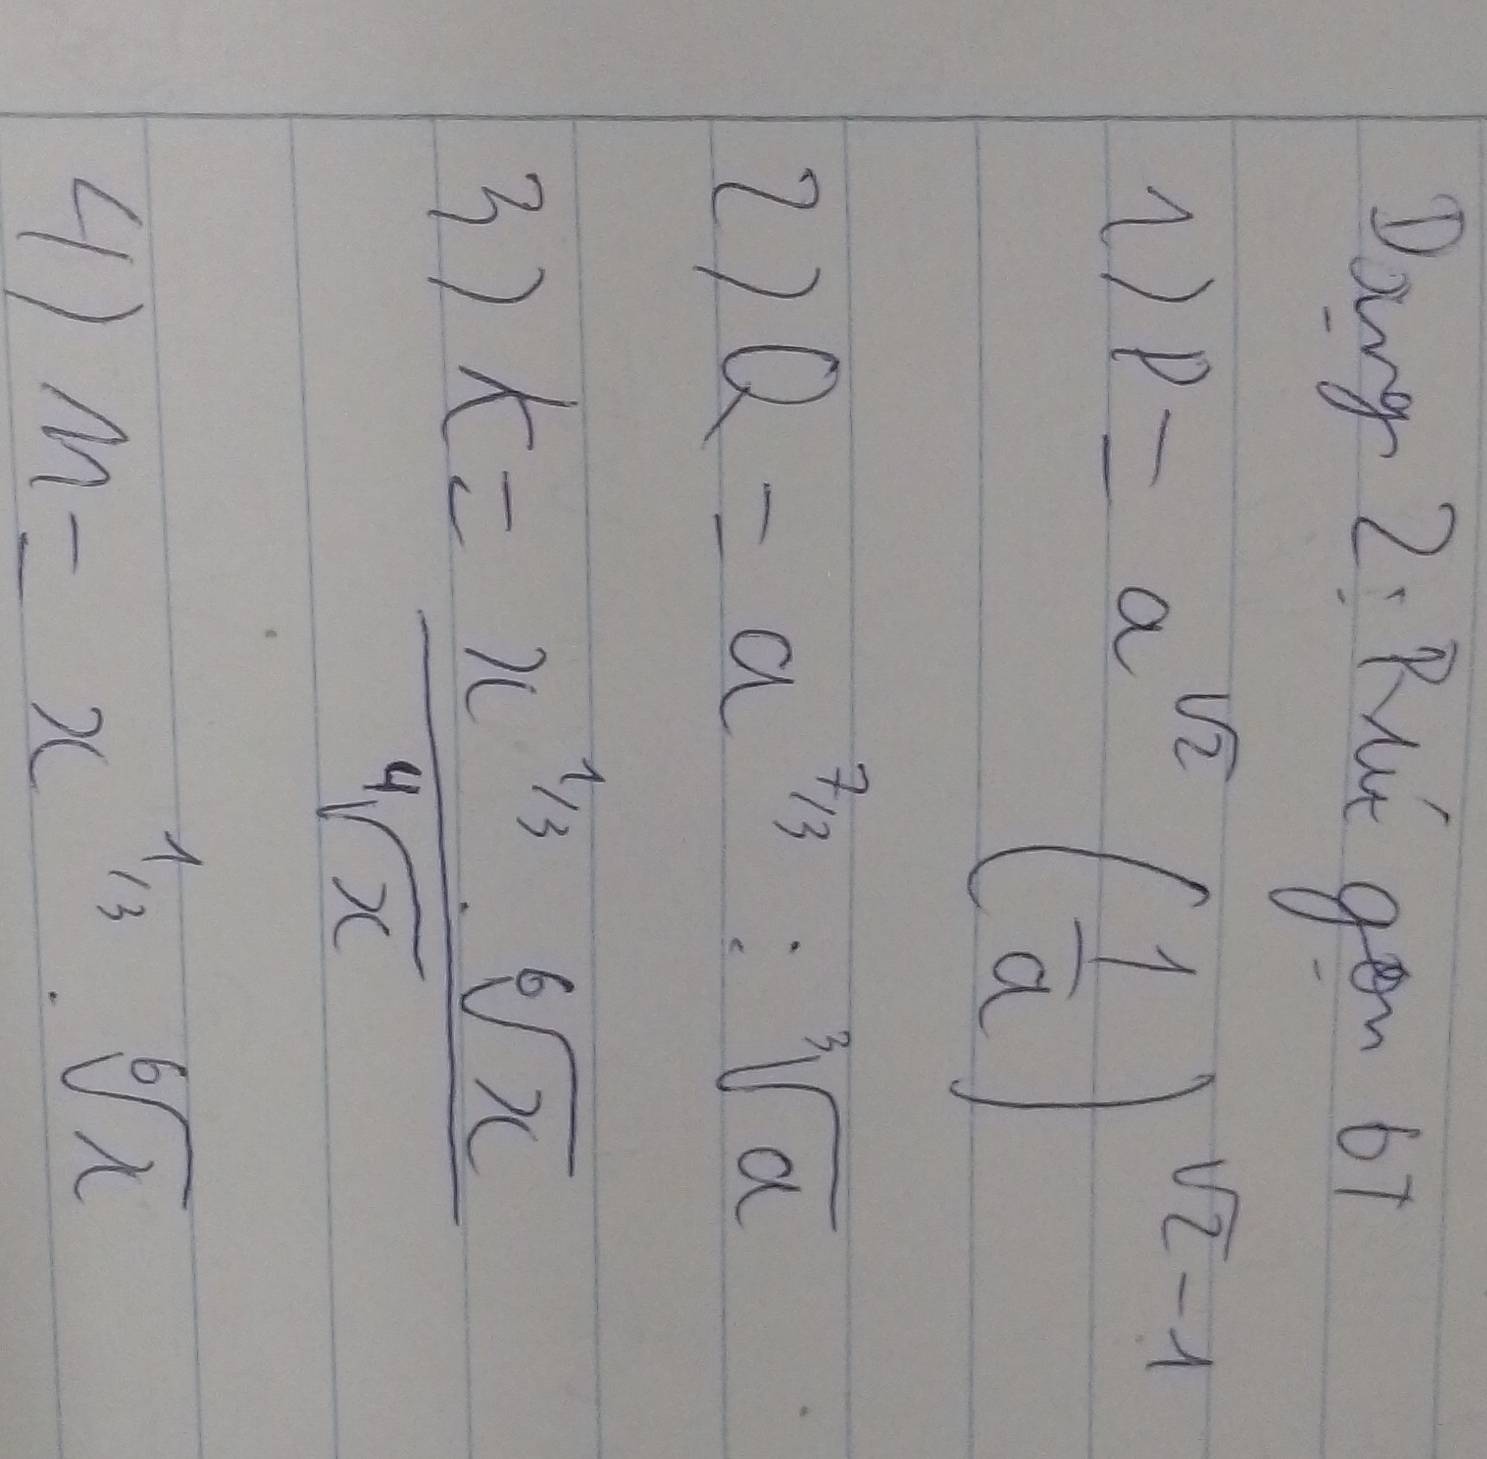 Dạng 2: Rút gọn bt
1) P = a^√2 (1/a)^√2-1
2) Q = a^7/3 : ∛a
3) K = x^1/3 . ⁶√x / ⁴√x
4) M = x^1/3 . ⁶√x